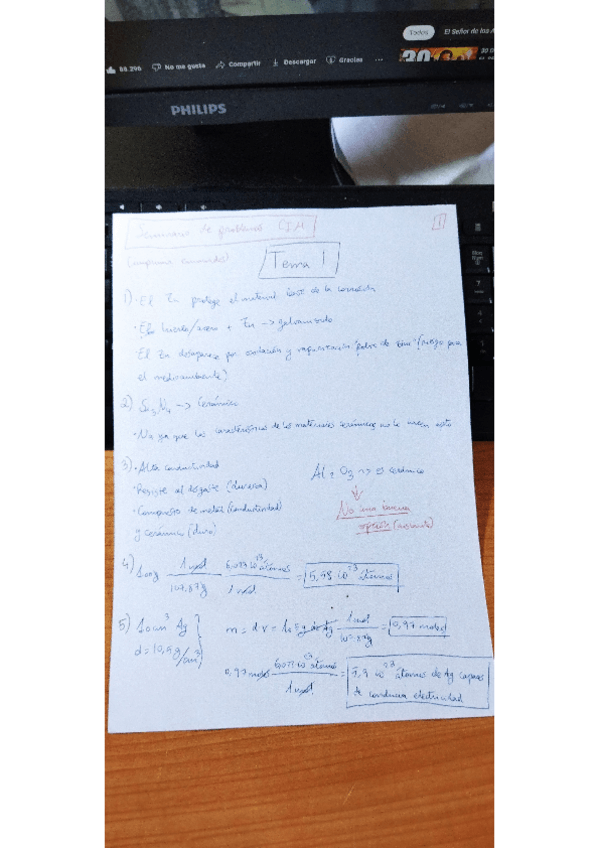 Todos
El Señor de los A
30
68.296 No me gusta Compartir Descargar Gracias ...
PHILIPS
Seminario de problemas CIM
1
Tema 1
1) · El Zn protege el material base de la corrosión
hierro/acero + Zn → galvanizado
El Zn desaparece por oxidación y vaporización "polvo de zinc" (riesgo para
el medioambiente)
2) Si3N4 → Cerámico
· No ya que las características de los materiales cerámicos no le esto
3) · Alta conductividad
Al2O3 → cerámico
· Resiste al desgaste (dureza)
· Compuesto de metal (conductividad)
y cerámico (duro)
No una buena
opción (aislante)
4) 100g 1 mol / 107,87g 6,023·10^23 átomos / 1 mol = 5,58·10^23 átomos
5) 10cm³ Ag
d = 10,5 g/cm³
m = d·v = 105g de Ag 1 mol / 107,87g = 0,97 moles
0,97 moles 6,023·10^23 átomos / 1 mol = 5,9·10^23 átomos de Ag capaces
de conducir electricidad